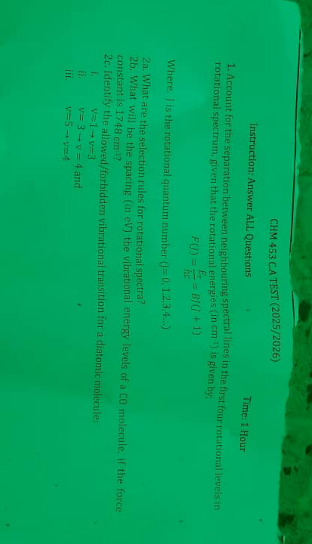 CHM 453 C.A TEST (2025/2026)
Instruction: Answer ALL Questions Time: 1 Hour
1. Account for the separation between neighbouring spectral lines in the first four rotational levels in
rotational spectrum, given that the rotational energies (in cm⁻¹) is given by;
F(J) = E_J/hc = BJ(J + 1)
Where, J is the rotational quantum number (J= 0,1,2,3,4...)
2a. What are the selection rules for rotational spectra?
2b. What will be the spacing (in eV) the vibrational energy levels of a CO molecule, if the force
constant is 1748 cm⁻¹?
2c. Identify the allowed/forbidden vibrational transition for a diatomic molecule:
i. v=1→v=3
ii. v= 3 → v = 4 and
iii. v=5 → v=4